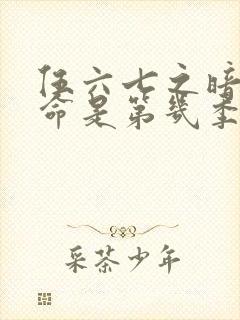 伍六七之暗
命是第几季
采茶少年